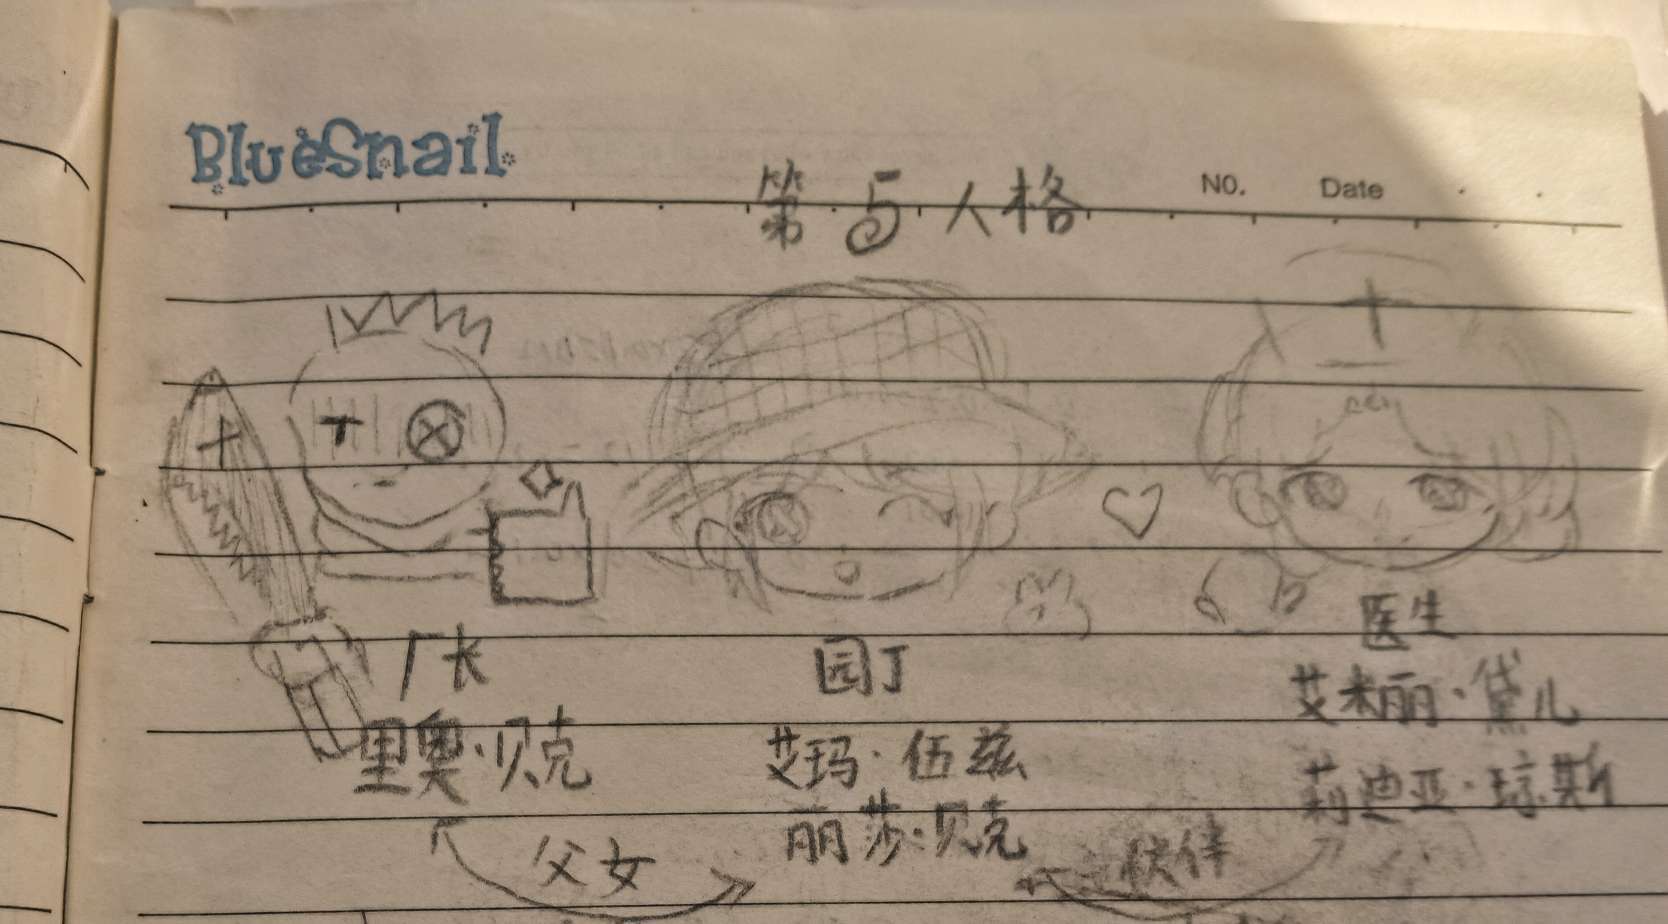 BlueSnail
第5人格
NO. Date
厂长
里奥·贝克
园丁
艾玛·伍兹
丽莎·贝克
医生
艾米丽·黛儿
莉迪亚·琼斯
父女
伙伴